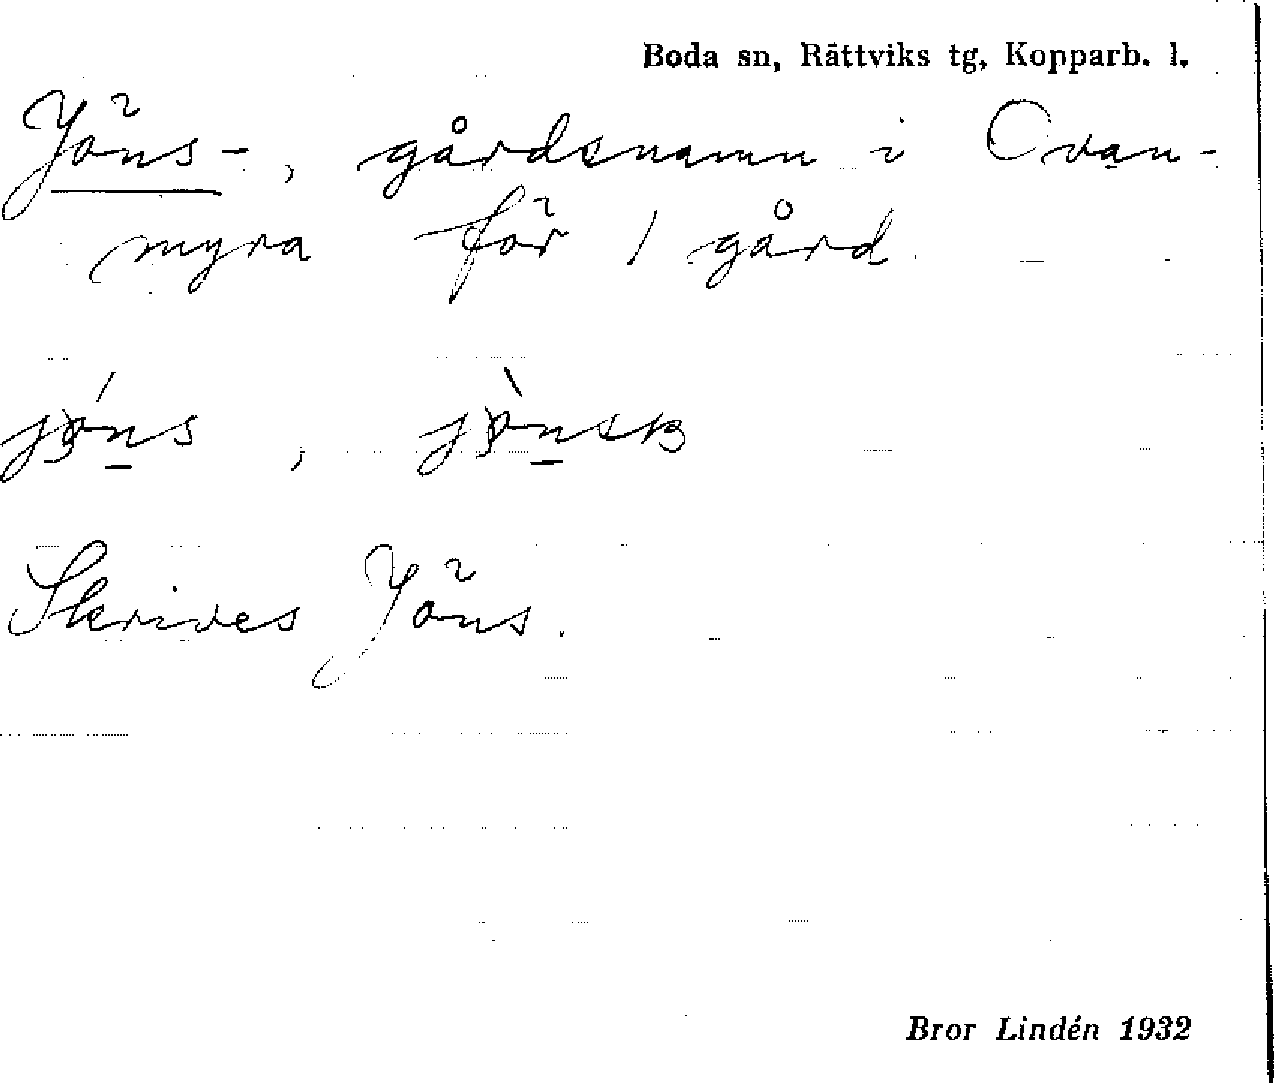 Boda sn, Rättviks tg, Kopparb. l.
Jöns-, gårdsnamn i Ovan-
myra för 1 gård.
Skrives Jöns.
Bror Lindén 1932